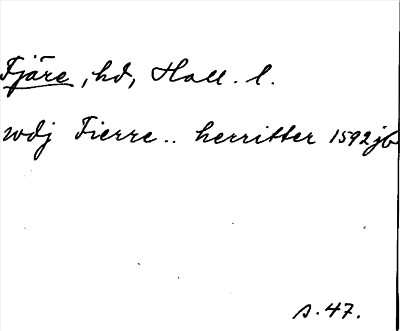 Fjäre, hd, Hall. l.
wdj Fierre.. herritter 1592 jb
s. 47.